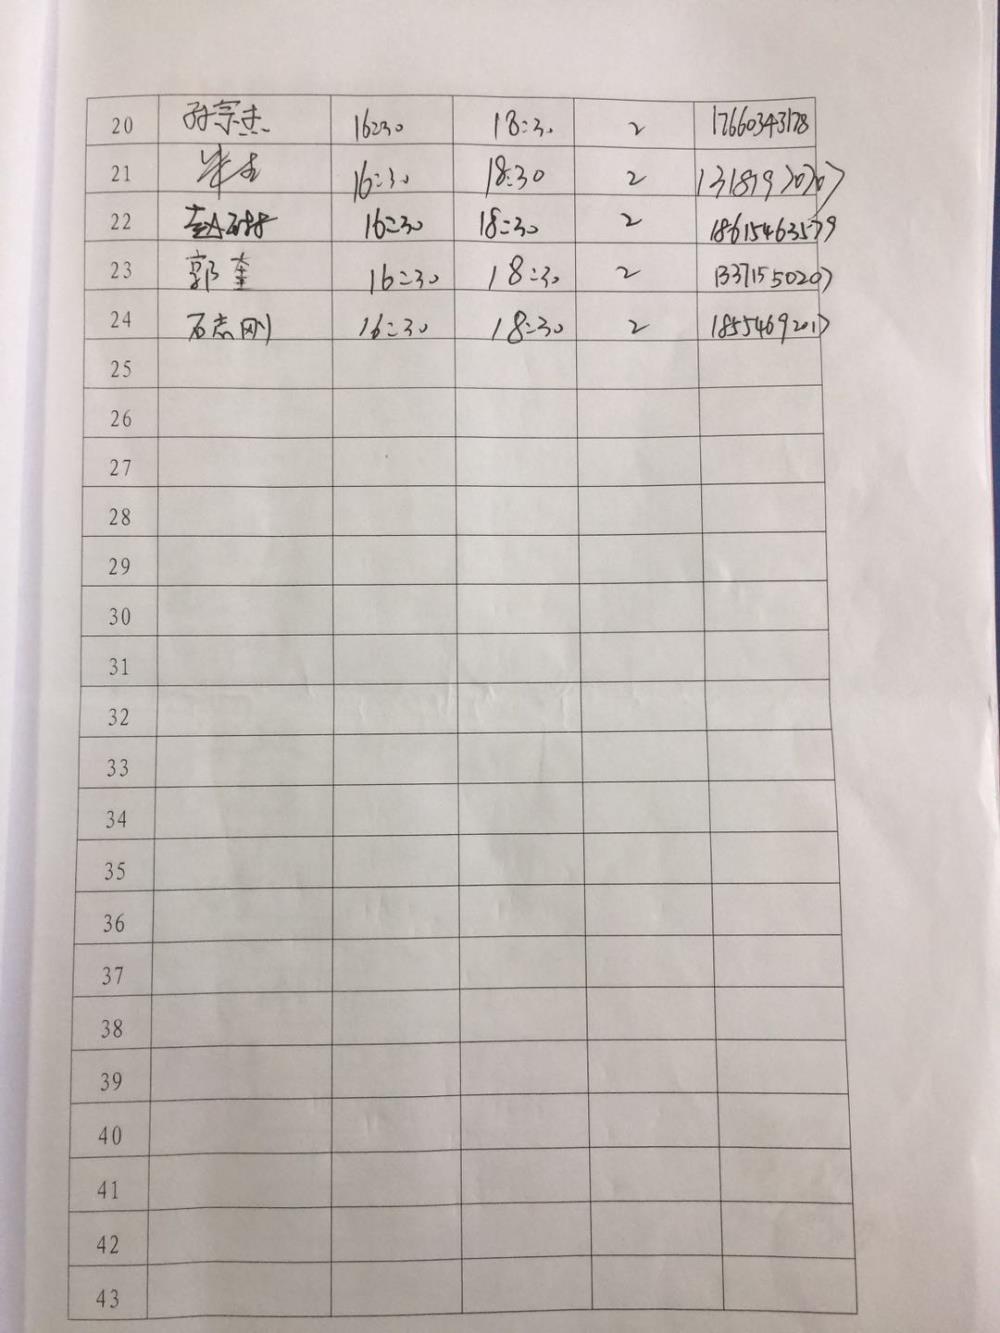 20 孙宗杰 16:30 18:30 2 17660343178
21 16:30 18:30 2 13181920207
22 16:30 18:30 2 18615463579
23 郭奎 16:30 18:30 2 13371550207
24 石志刚 16:30 18:30 2 18554692017
25
26
27
28
29
30
31
32
33
34
35
36
37
38
39
40
41
42
43